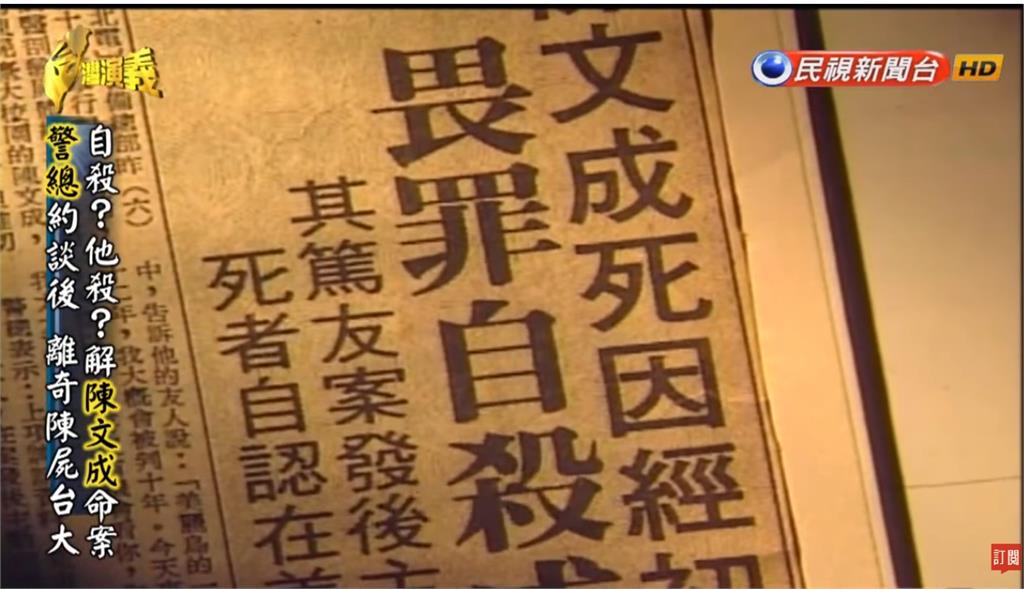 台灣演義
民視新聞台 HD
自殺？他殺？解陳文成命案
警總約談後 離奇陳屍台大
文成死因經初
畏罪自殺
其篤友案發後
死者自認在美
部昨（六）
大校園的陳文成，
中，告訴他的友人說：「美麗島的
年，我大概會被列十年。今天
表示：上項
訂閱